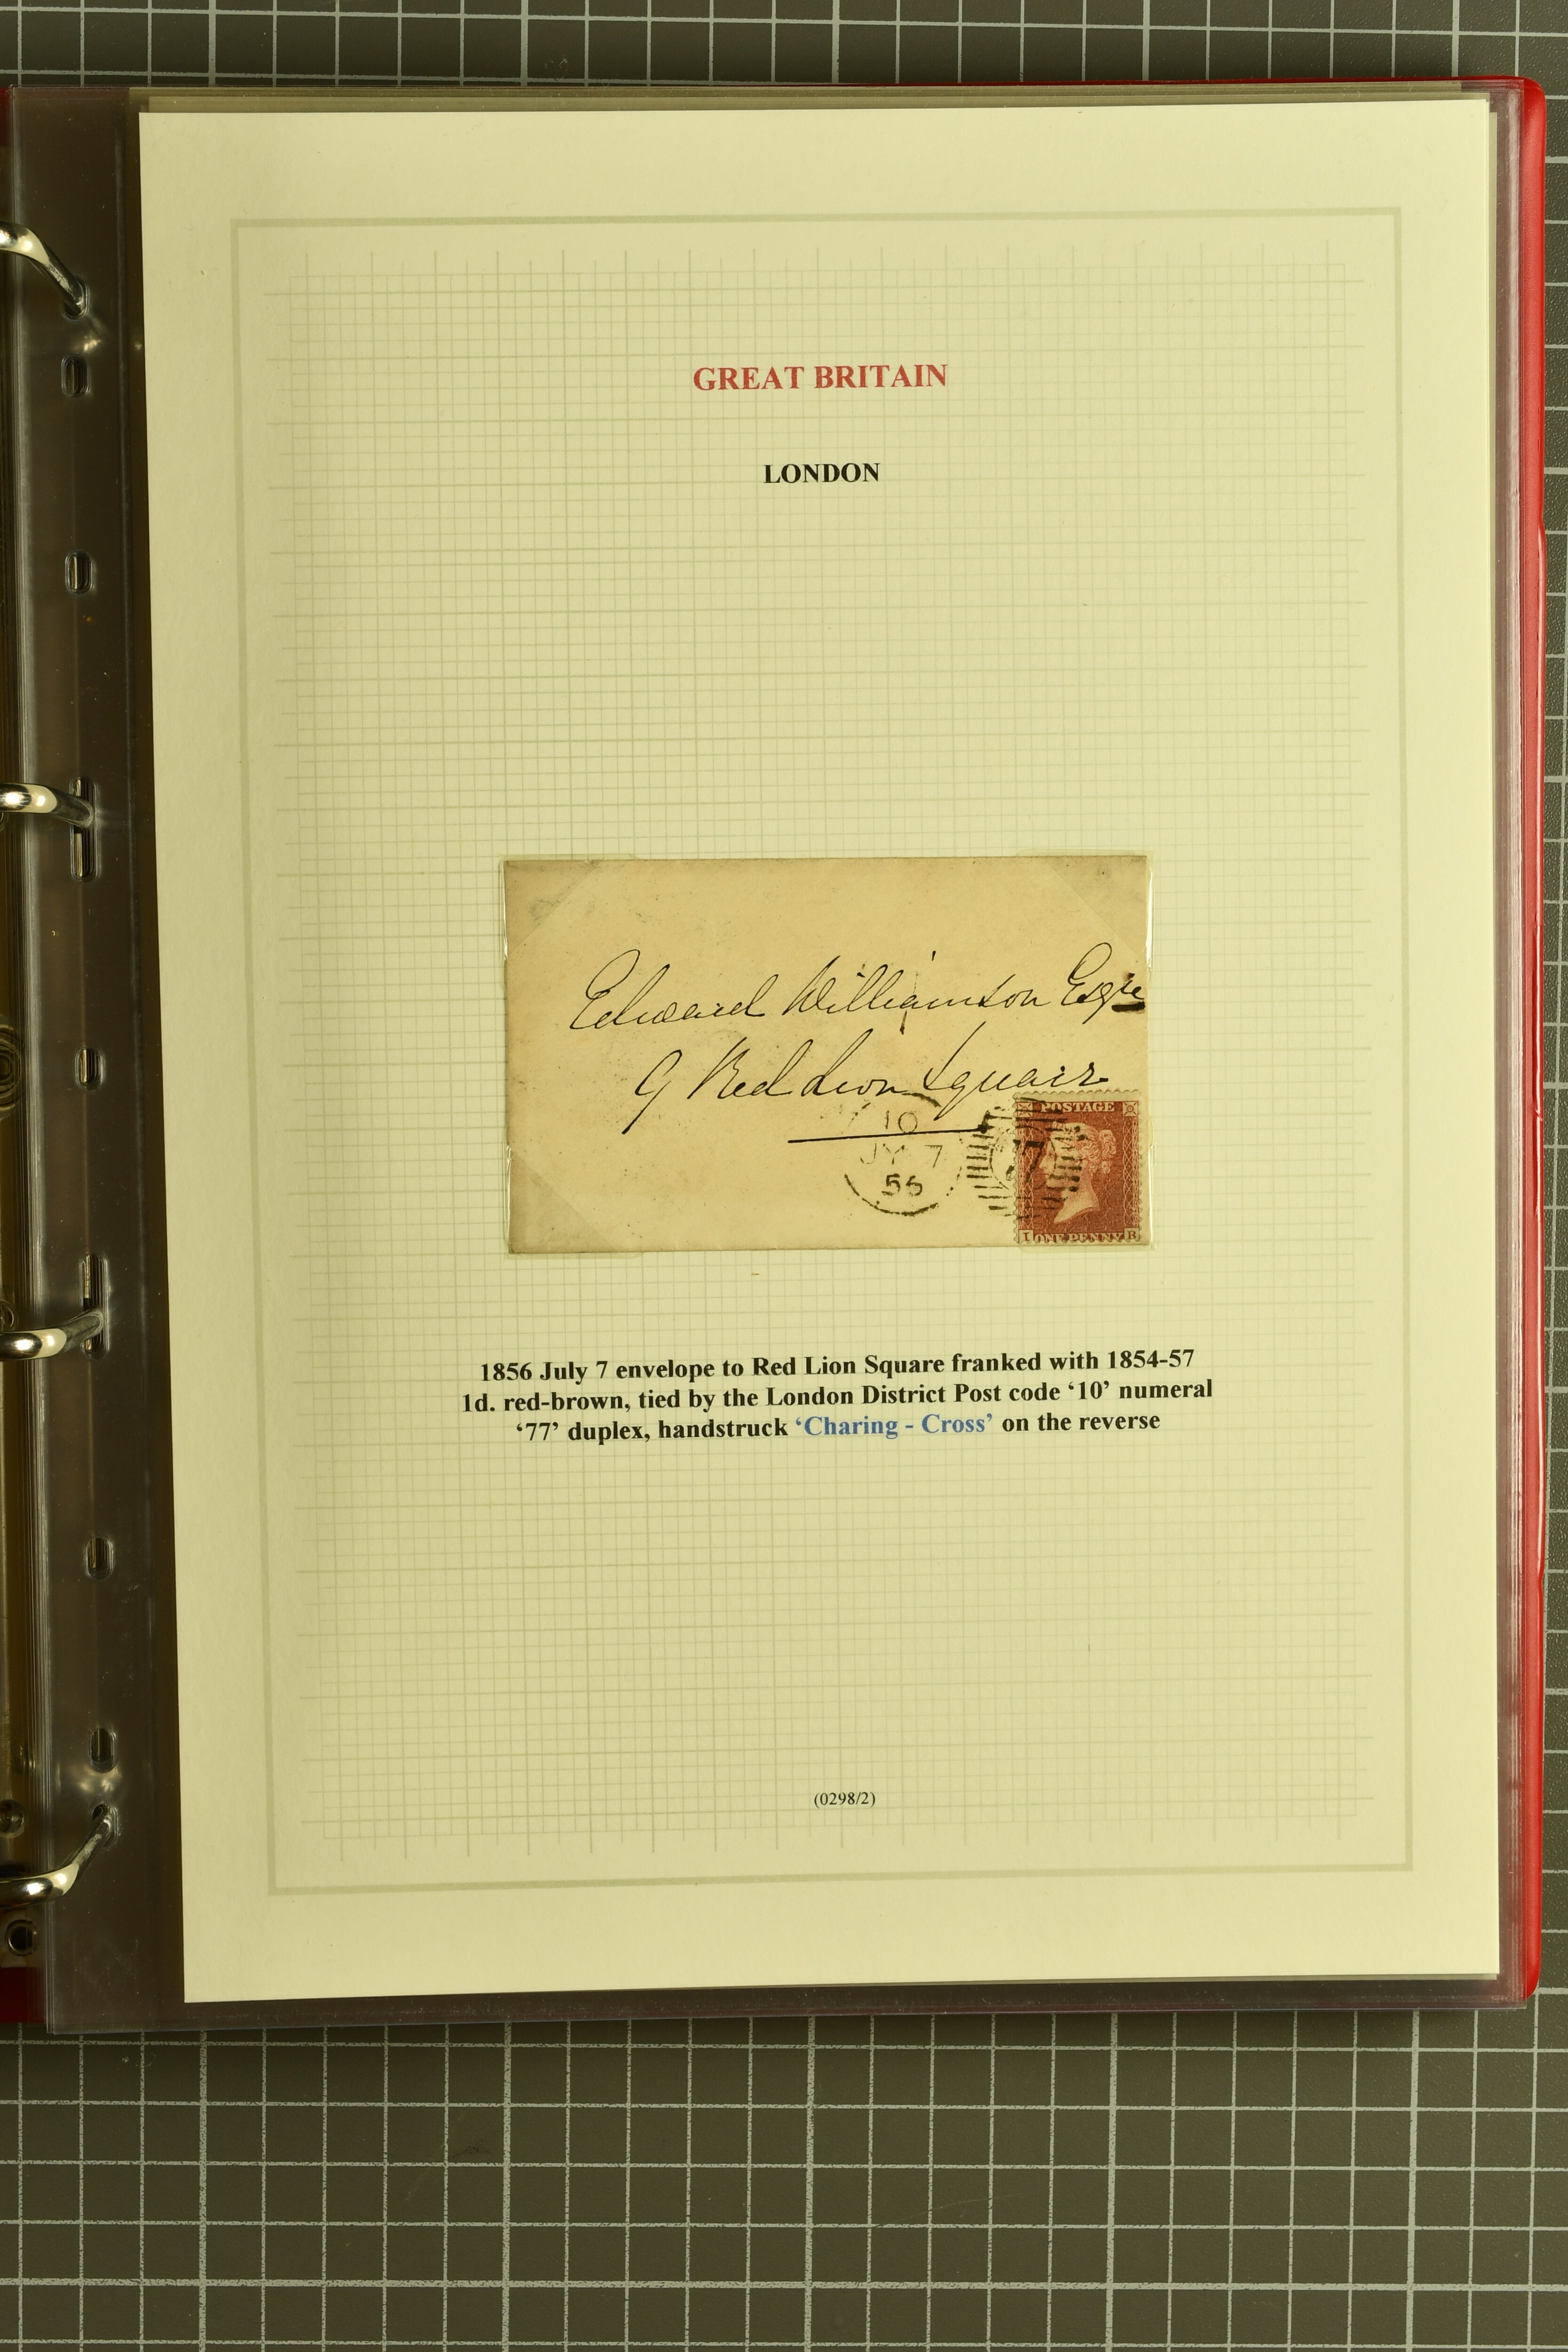 GREAT BRITAIN
LONDON
Edward Williamson Esqre
9 Red Lion Square
10
JY 7
56
77
POSTAGE
I ONE PENNY R
1856 July 7 envelope to Red Lion Square franked with 1854-57
1d. red-brown, tied by the London District Post code ‘10’ numeral
‘77’ duplex, handstruck ‘Charing - Cross’ on the reverse
(0298/2)